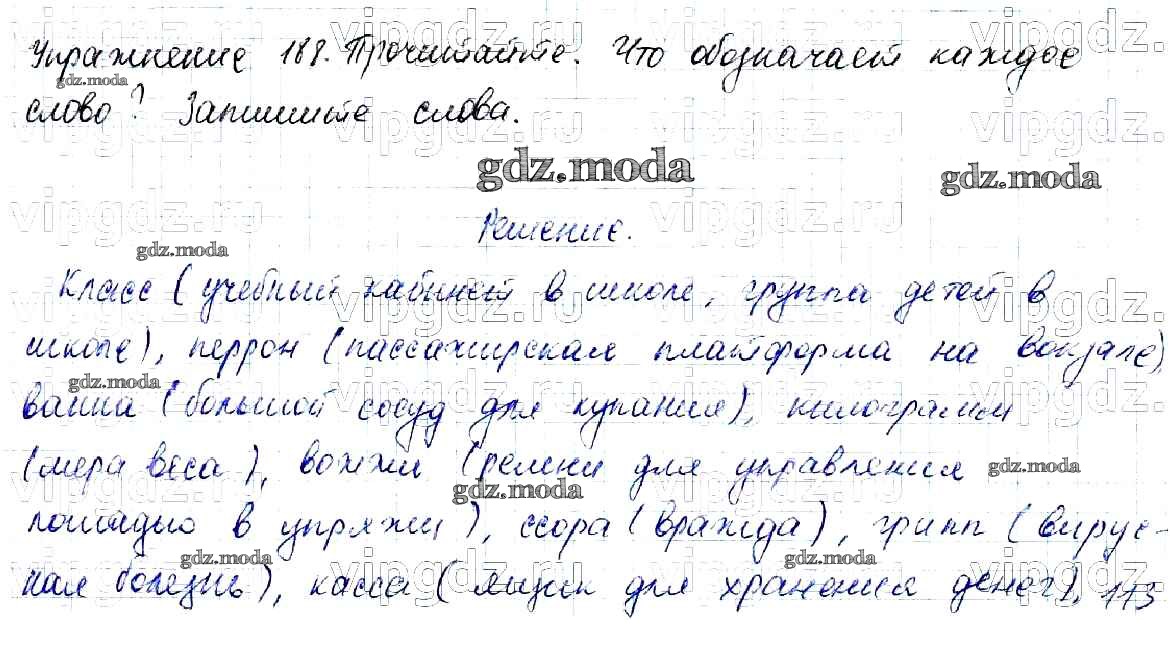 Упражнение 188. Прочитайте. Что обозначает каждое
слово? Запишите слова.
gdz.moda
gdz.moda
Решение.
gdz.moda
Класс (учебный кабинет в школе, группа детей в
школе), перрон (пассажирская платформа на вокзале),
gdz.moda
ванна (большой сосуд для купания), килограмм
(мера веса), вожжи (ремни для управления
gdz.moda
gdz.moda
лошадью в упряжи), ссора (вражда), грипп (вирус-
gdz.moda
gdz.moda
ная болезнь), касса (ящик для хранения денег), 113